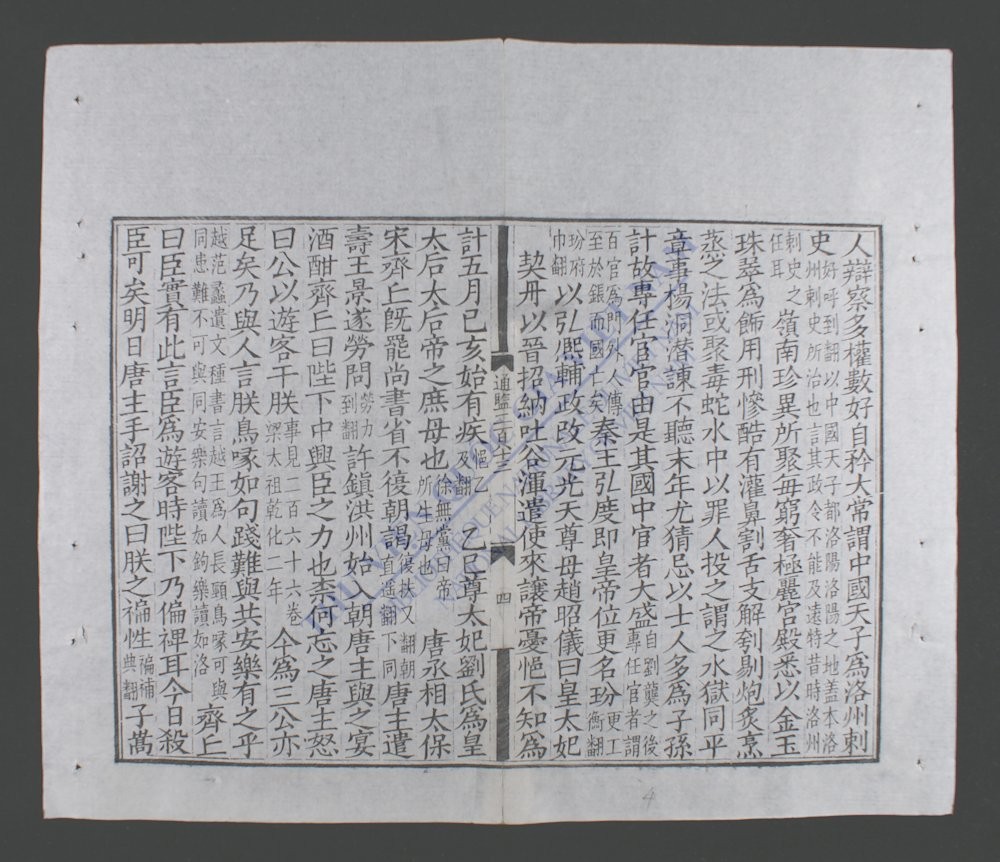 人辯察多權數好自矜大常謂中國天子爲洛州刺
史好呼到翻以中國天子都洛陽洛陽之地蓋本洛州刺史所治也言其政令不能及遠特昔時洛州
刺史之任耳嶺南珍異所聚每窮奢極麗宮殿悉以金玉
珠翠爲飾用刑慘酷有灌鼻割舌支解刳剔炮炙烹
蒸之法或聚毒蛇水中以罪人投之謂之水獄同平
章事楊洞潛諫不聽末年尤猜忌以士人多爲子孫
計故專任宦官由是其國中宦者大盛自劉龑之後專任宦者謂
百官爲門外人傳至於鋹而國亡矣秦王弘度即皇帝位更名玢更工衡翻
玢府巾翻以弘熙輔政改元光天尊母趙昭儀曰皇太妃
契丹以晉招納吐谷渾遣使來讓帝憂悒不知爲
通鑑二百八十三
四
計五月己亥始有疾悒乙及翻乙巳尊太妃劉氏爲皇
太后太后帝之庶母也徐無黨曰帝所生母也唐丞相太保
宋齊丘旣罷尚書省不復朝謁復扶又翻朝直遥翻下同唐主遣
壽王景遂勞問勞力到翻許鎮洪州始入朝唐主與之宴
酒酣齊丘曰陛下中興臣之力也柰何忘之唐主怒
曰公以遊客干朕事見二百六十六卷梁太祖乾化二年今爲三公亦
足矣乃與人言朕鳥喙如句踐難與共安樂有之乎
越范蠡遺文種書言越王爲人長頸鳥喙可與同患難不可與同安樂句讀如鉤樂讀如洛齊丘
曰臣實有此言臣爲遊客時陛下乃偏裨耳今日殺
臣可矣明日唐主手詔謝之曰朕之褊性褊補典翻子嵩
4